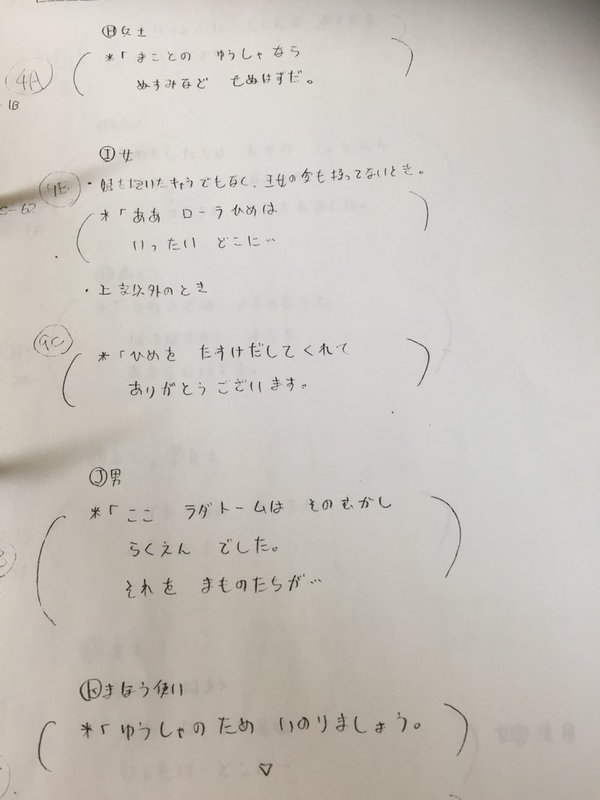 Ⓗ女士
4A
*「まことの ゆうしゃなら
ぬすみなど せぬはずだ。
1B
Ⓘ女
・姫を抱いたキャラでもなく、王女の命も持ってないとき。
*「ああ ローラひめは
いったい どこに…
・上記以外のとき
9C
*「ひめを たすけだしてくれて
ありがとうございます。
Ⓙ男
*「ここ ラダトームは そのむかし
らくえん でした。
それを まものたちが…
Ⓚまほう使い
*「ゆうしゃのため いのりましょう。
▽